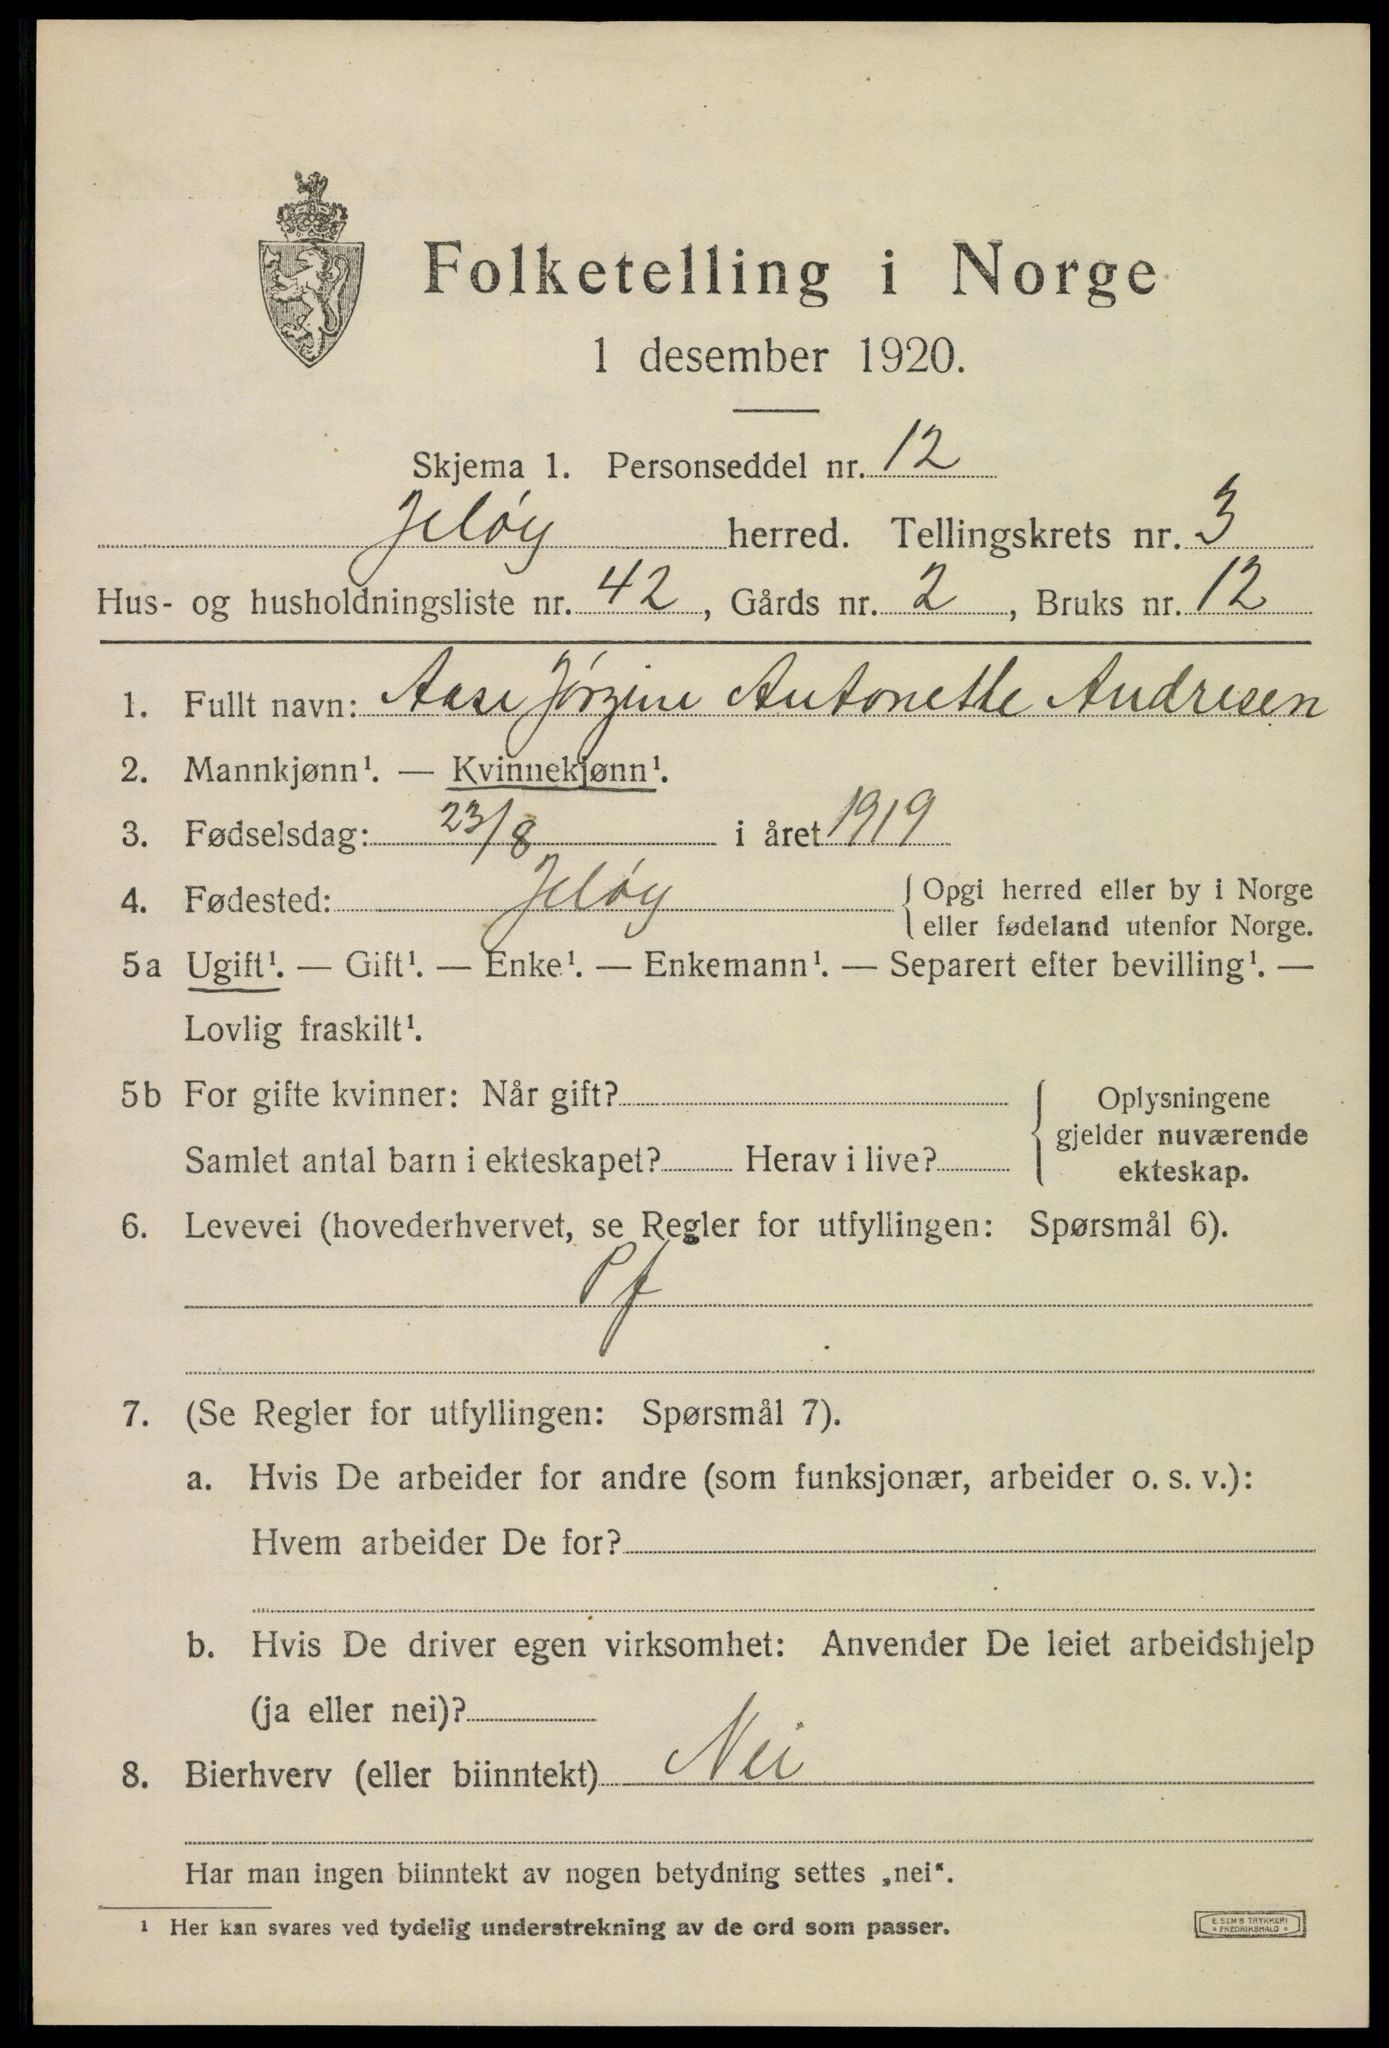 Folketelling i Norge
1 desember 1920.
Skjema 1. Personseddel nr. 12
Jeløy herred. Tellingskrets nr. 3
Hus- og husholdningsliste nr. 42, Gårds nr. 2, Bruks nr. 12
1. Fullt navn: Aase Jørgine Antonette Andresen
2. Mannkjønn¹. — Kvinnekjønn¹.
3. Fødselsdag: 23/8 i året 1919
4. Fødested: Jeløy { Opgi herred eller by i Norge
eller fødeland utenfor Norge.
5a Ugift¹. — Gift¹. — Enke¹. — Enkemann¹. — Separert efter bevilling¹. —
Lovlig fraskilt¹.
5b For gifte kvinner: Når gift?
Samlet antal barn i ekteskapet? Herav i live?
{ Oplysningene
gjelder nuværende
ekteskap.
6. Levevei (hovederhvervet, se Regler for utfyllingen: Spørsmål 6).
Pf
7. (Se Regler for utfyllingen: Spørsmål 7).
a. Hvis De arbeider for andre (som funksjonær, arbeider o. s. v.):
Hvem arbeider De for?
b. Hvis De driver egen virksomhet: Anvender De leiet arbeidshjelp
(ja eller nei)?
8. Bierhverv (eller biinntekt) Nei
Har man ingen biinntekt av nogen betydning settes „nei“.
¹ Her kan svares ved tydelig understrekning av de ord som passer.
E. SEM'S TRYKKERI
• FREDRIKSHALD •